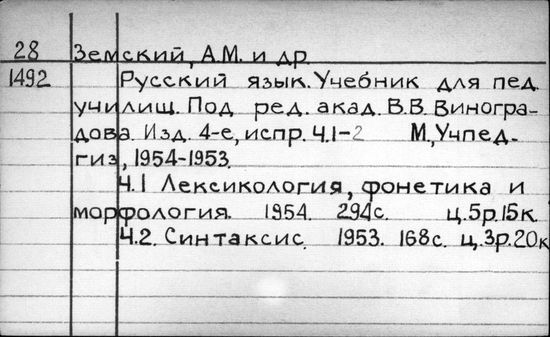 28 Земский, А.М. и др.
1492 Русский язык. Учебник для пед.
училищ. Под ред. акад. В.В. Виногра-
дова. Изд. 4-е, испр. Ч.1-2 М., Учпед-
гиз, 1954-1953.
Ч.1 Лексикология, фонетика и
морфология. 1954. 294с. ц.5р.15к.
Ч.2. Синтаксис. 1953. 168с. ц.3р.20к